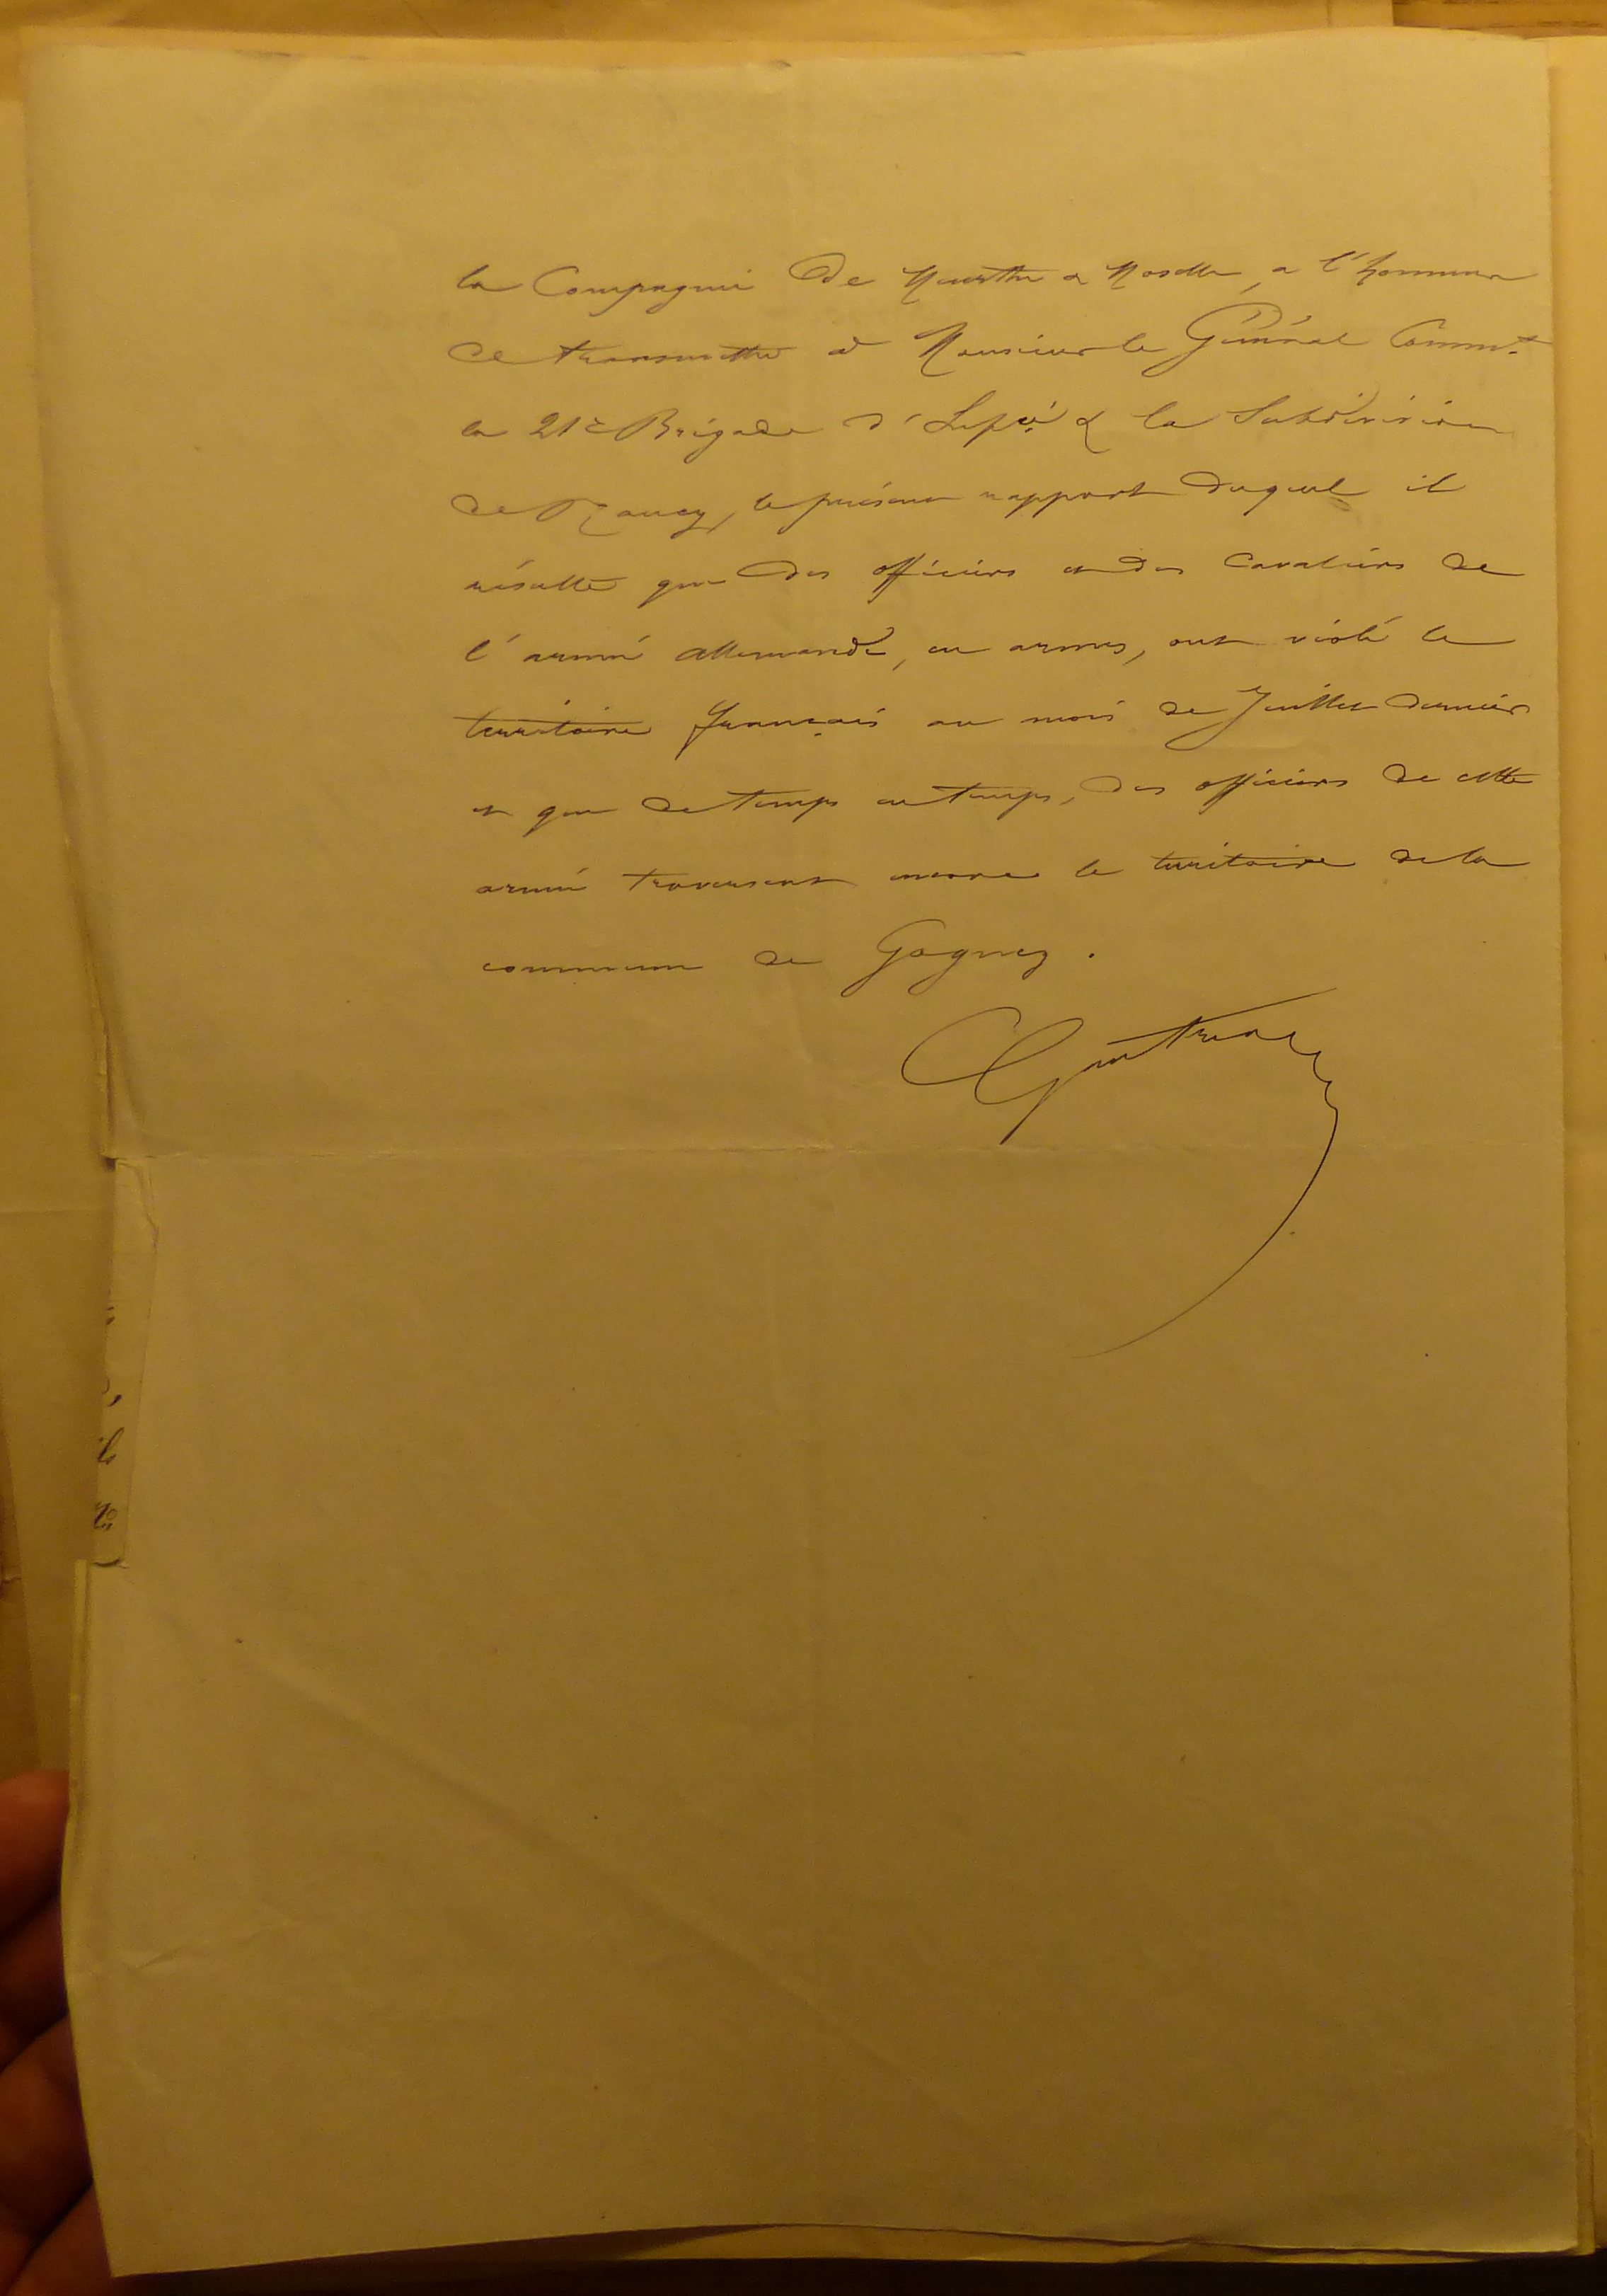 la Compagnie de Meurthe & Moselle, a l'honneur
de transmettre à Monsieur le Général Comm.t
la 21e Brigade d' & la Subdivision
de Nancy, le présent rapport duquel il
résulte que des officiers et des cavaliers de
l'armée allemande, en armes, ont violé le
territoire français au mois de Juillet dernier
et que de temps en temps, des officiers de cette
armée traversent encore le territoire de la
commune de